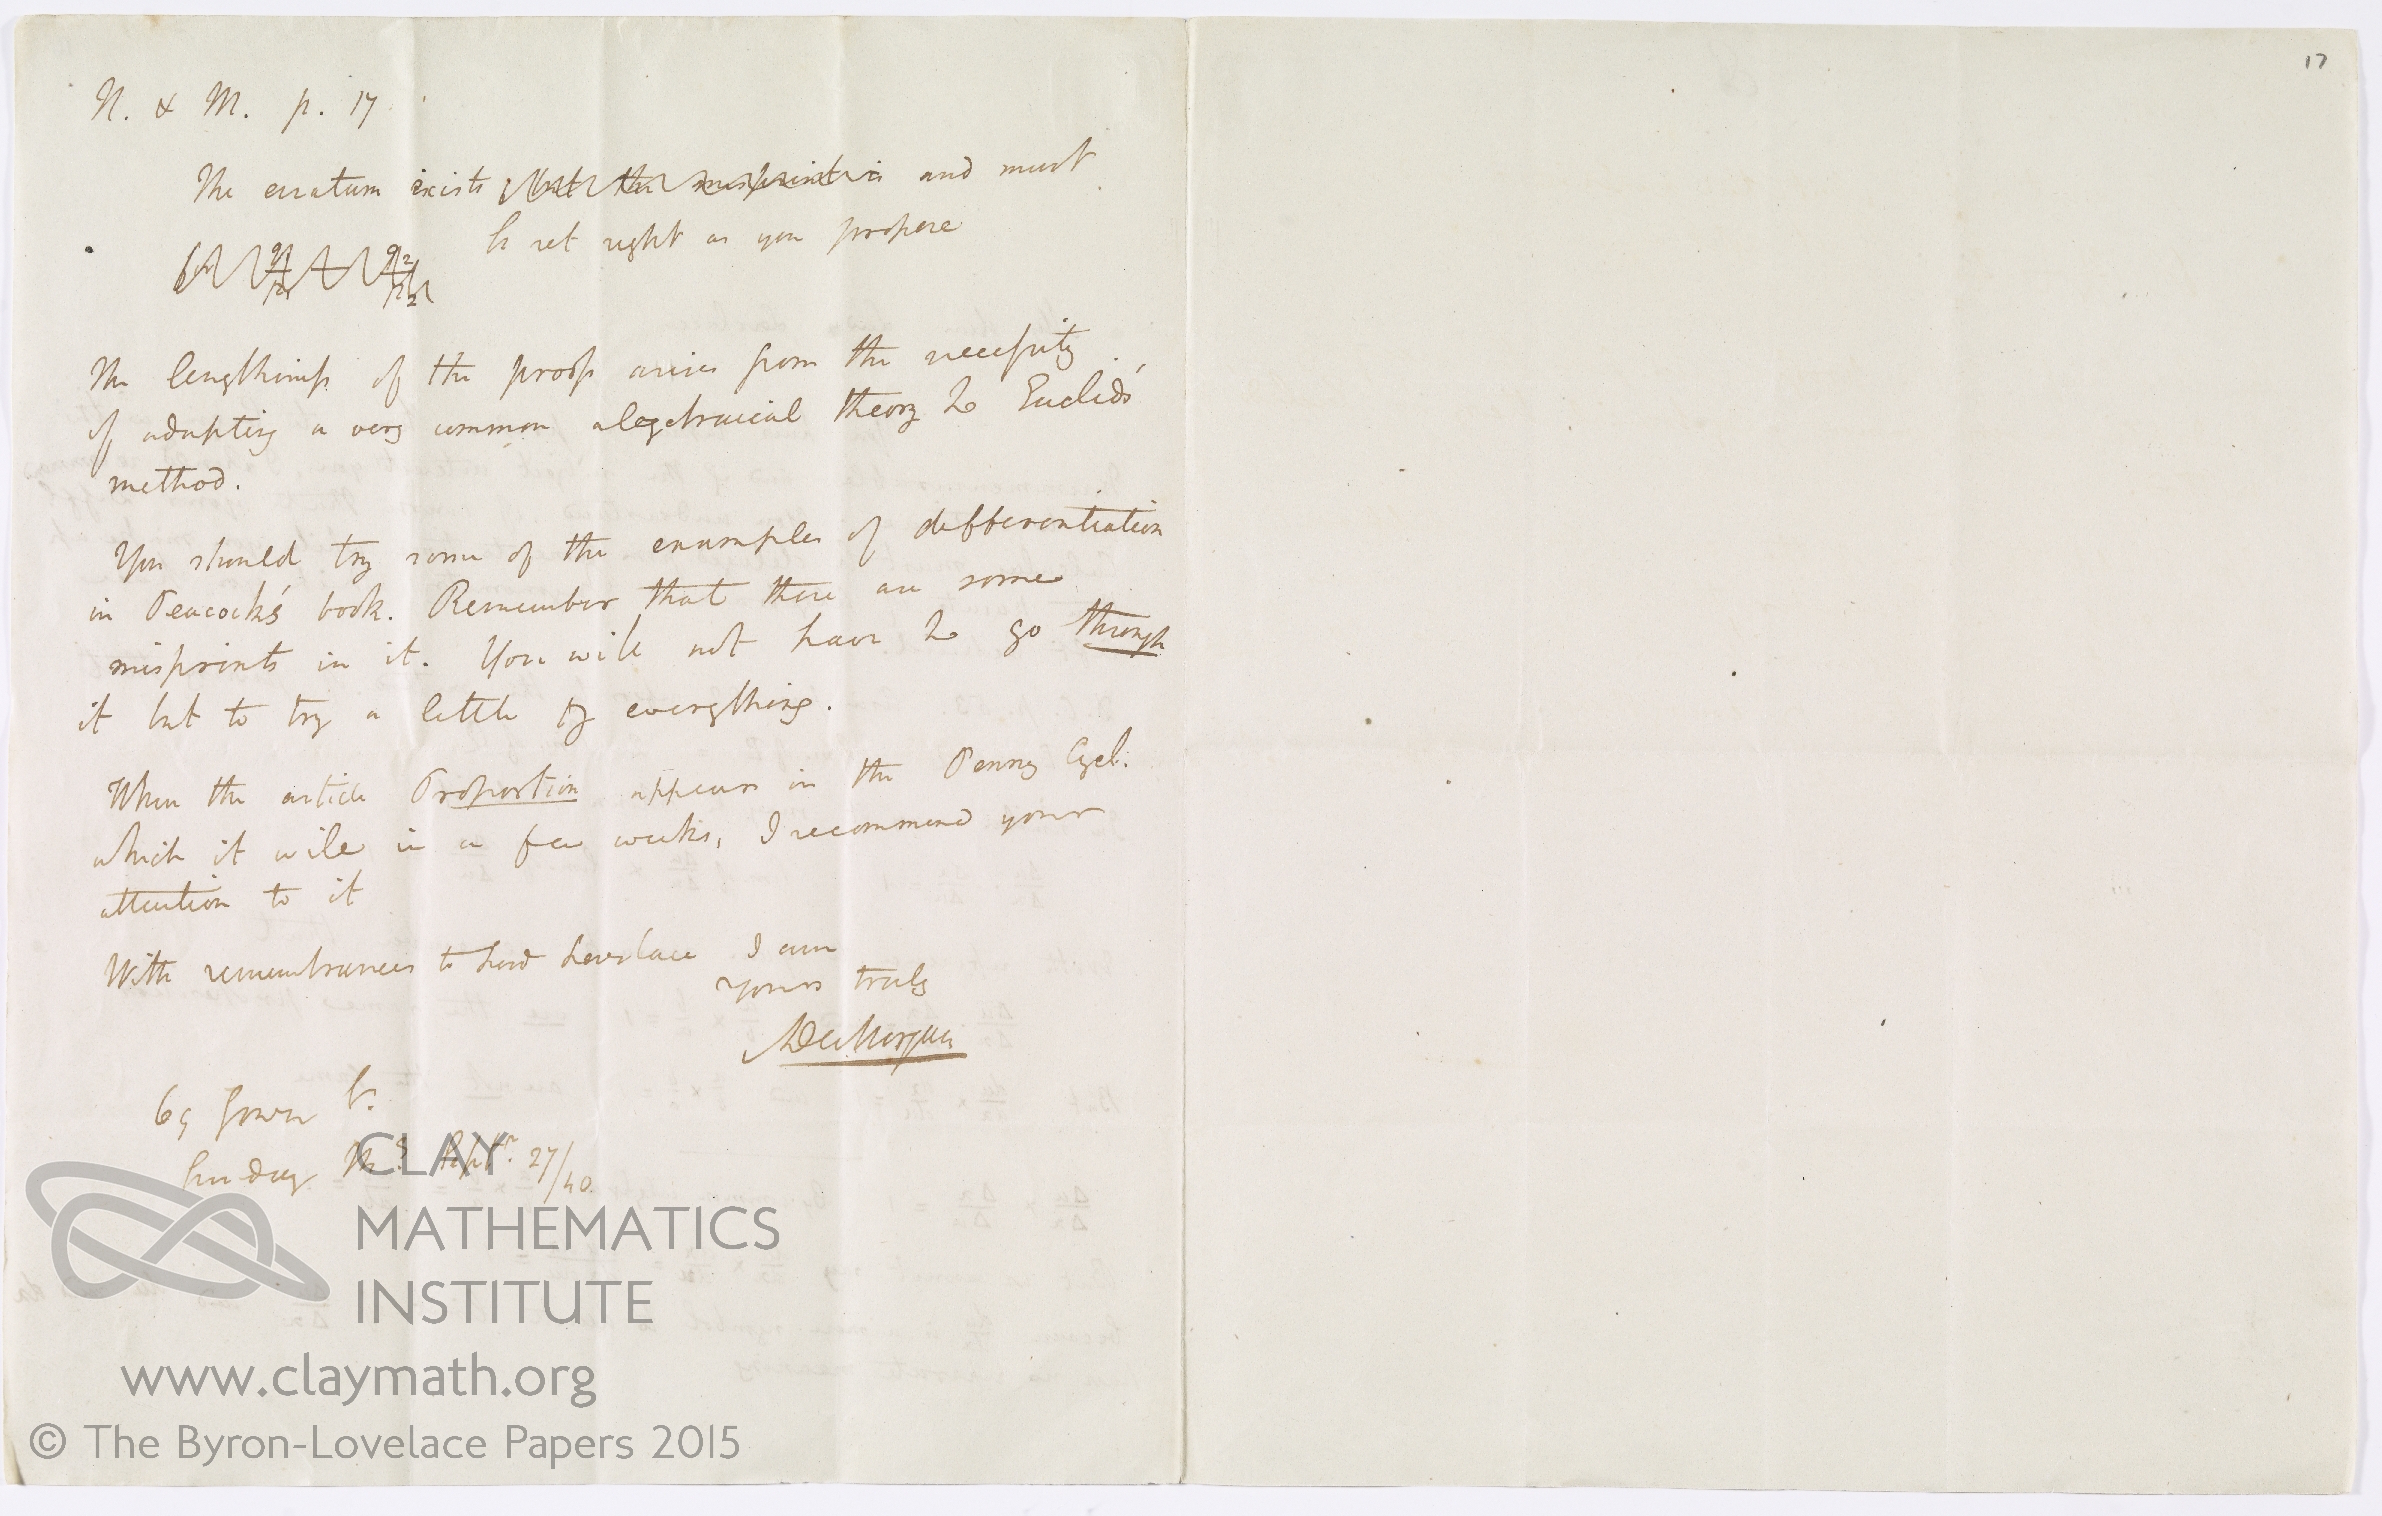 17
N. & M. p. 17
The erratum exists, but the misprint is and must
be set right as you propose
The lengthiness of the proof arises from the necessity
of adapting a very common alegebraical theory to Euclid's
method.
You should try some of the examples of differentiation
in Peacock's book. Remember that there are some
misprints in it. You will not have to go through
it but to try a little of everything.
When the article Proportion appears in the Penny Cycl.
which it will in a few weeks, I recommend your
attention to it
With remembrances to Lord Lovelace I am
yours truly
ADeMorgan
69 Gower St.
Sunday Mg. Septr. 27/40.
CLAY
MATHEMATICS
INSTITUTE
www.claymath.org
© The Byron-Lovelace Papers 2015